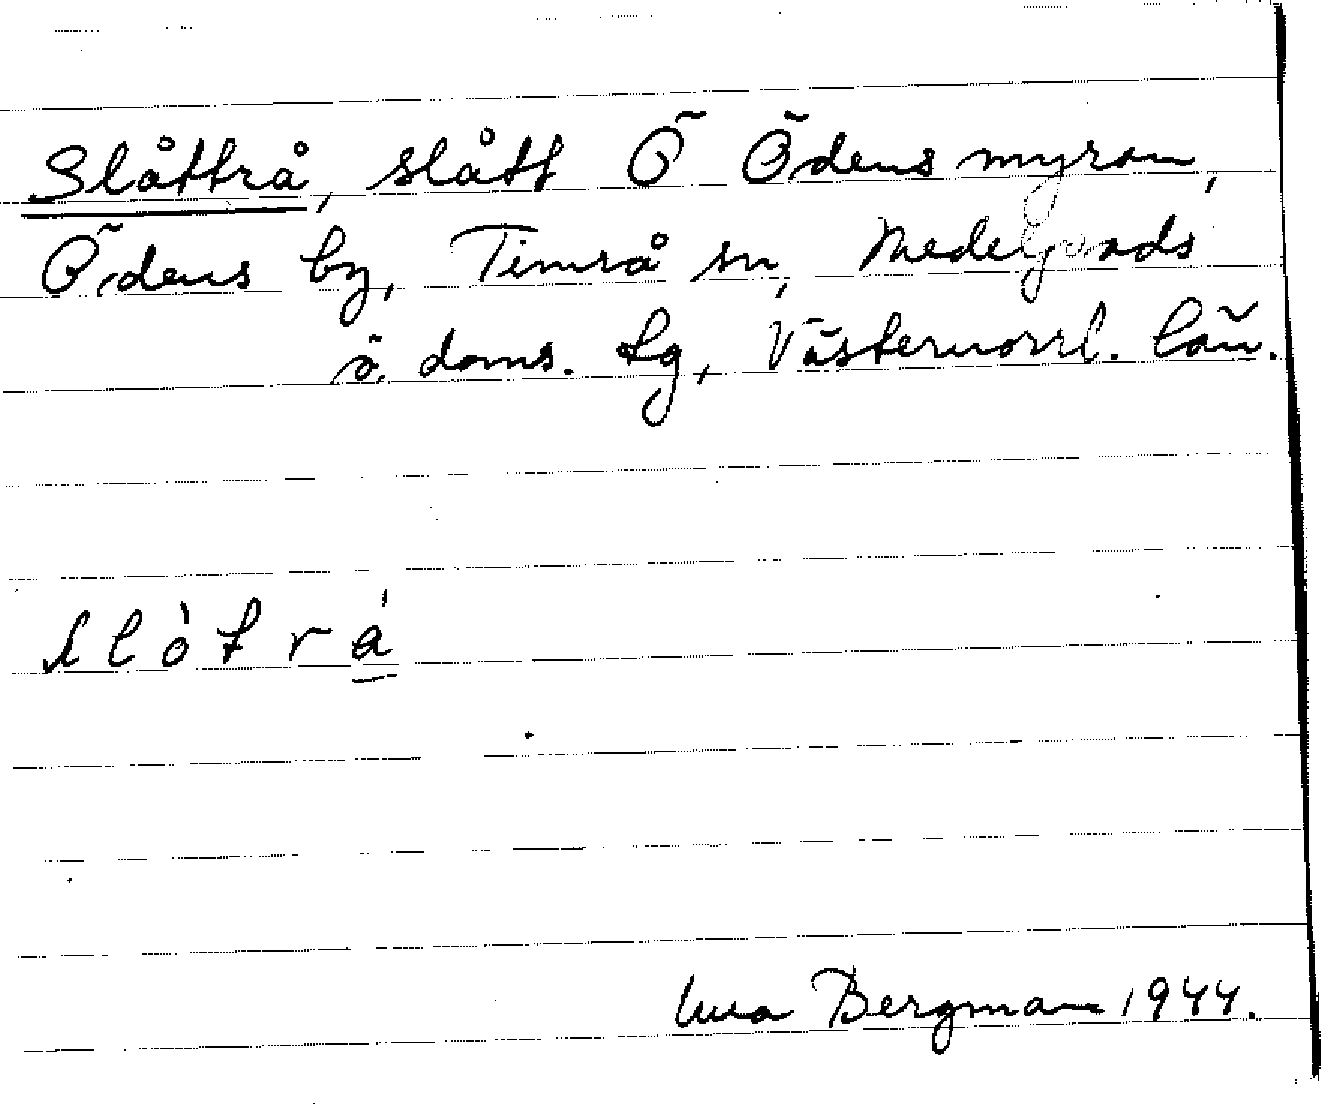 Slåttrå, slått Ö Ödensmyran,
Ödens by, Timrå sn, Medelpads
ö. doms. tg, Västernorrl. län.
slòtrá
Bergman 1944.